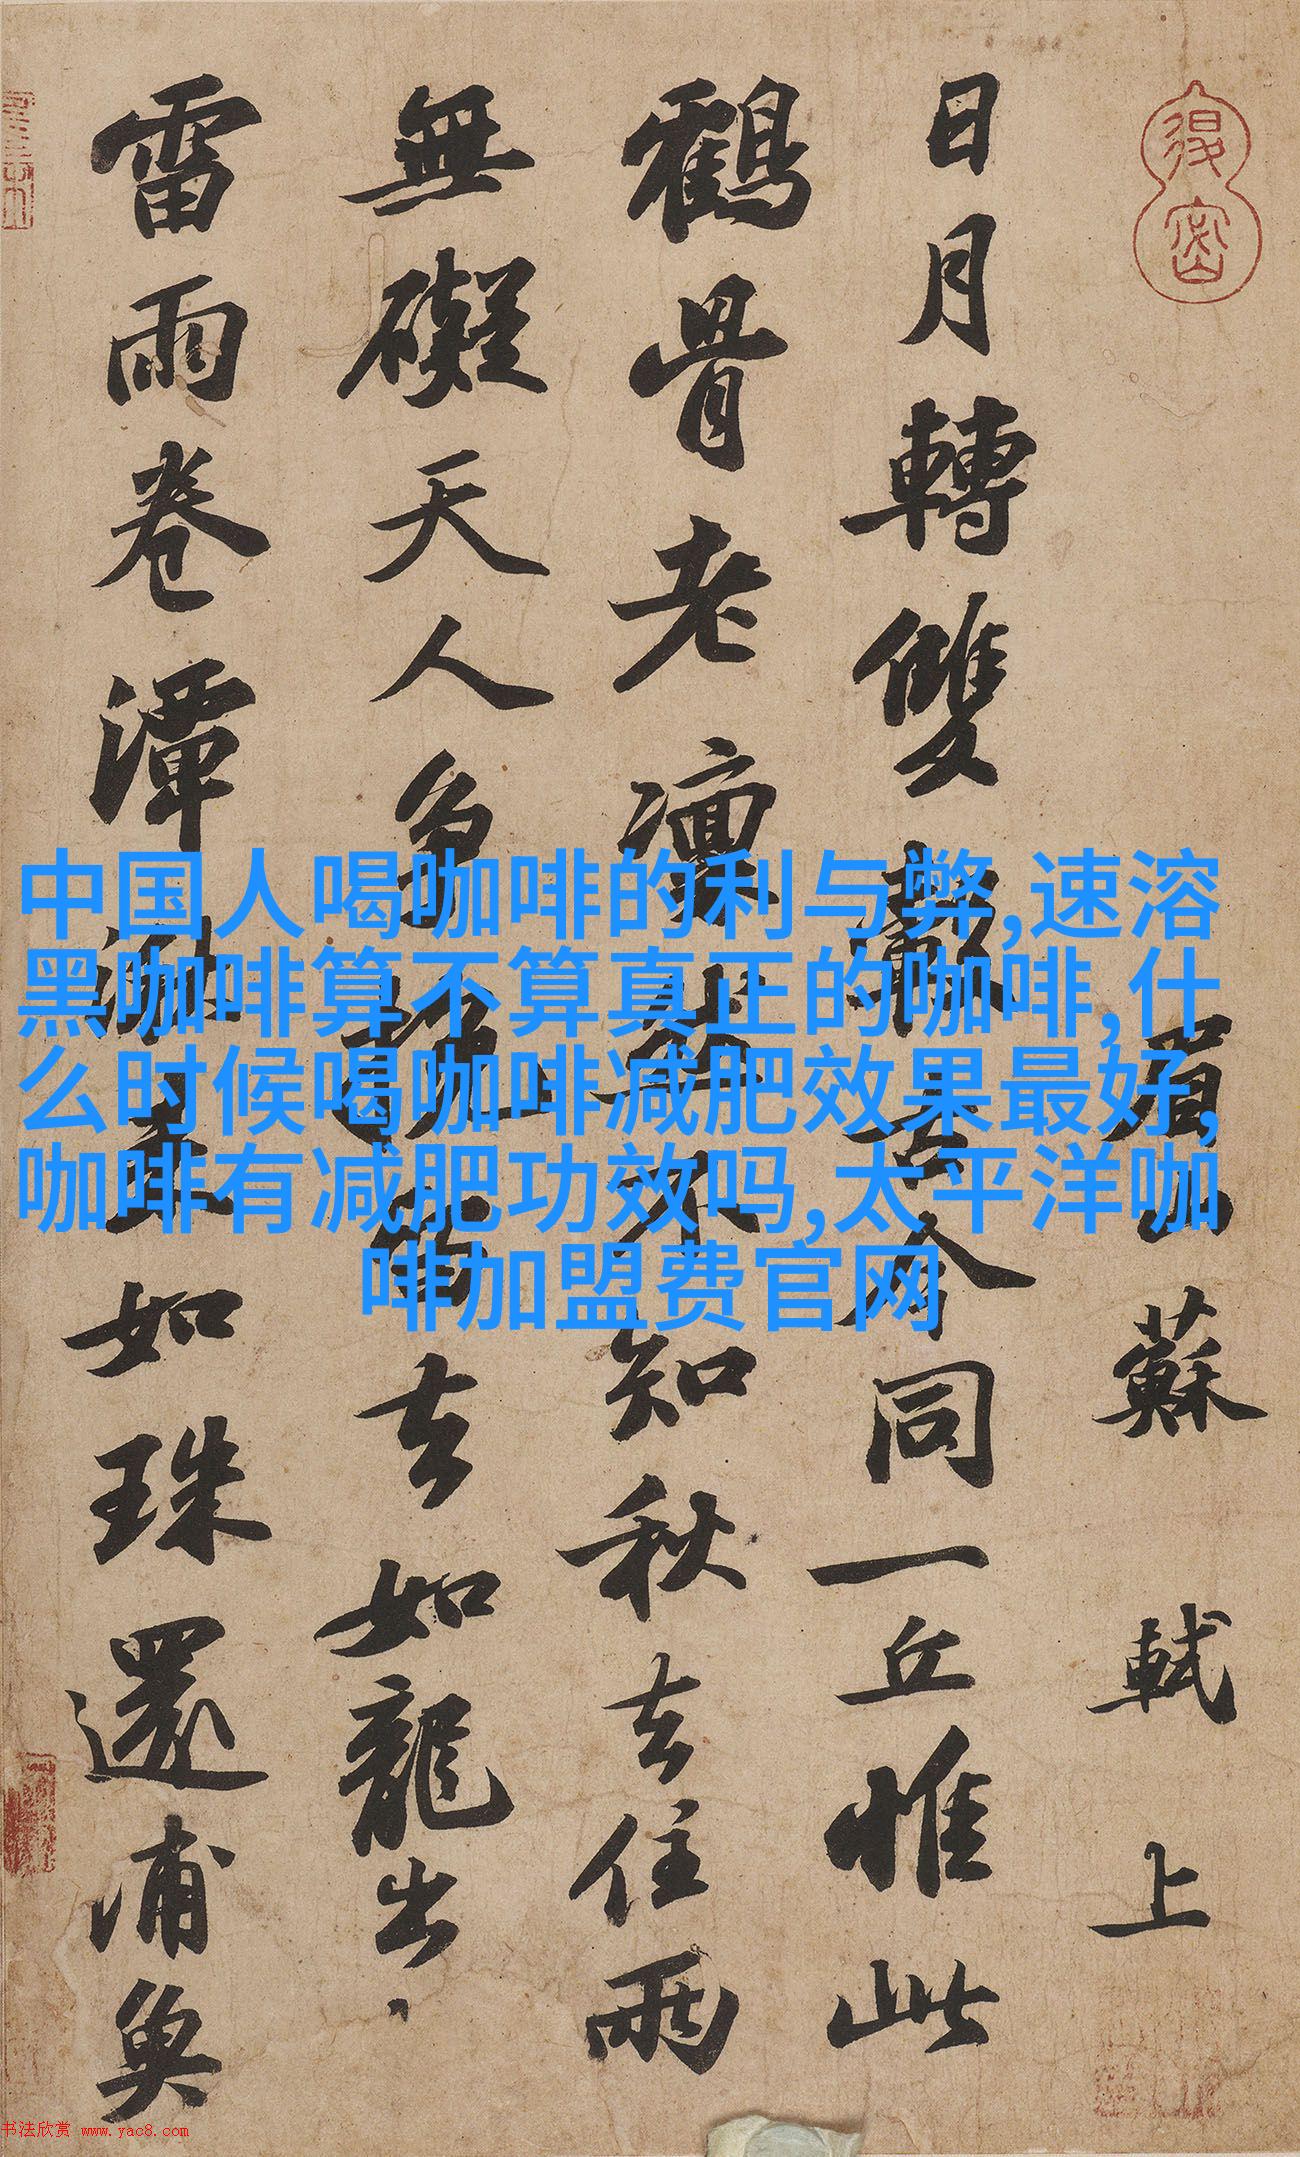 眉山蘇軾上
日月轉雙轂古今同一丘惟此
鶴骨老凜然不知秋去住兩
無礙天人争挽留去如龍出
雷雨卷潭湫来如珠還浦魚
中国人喝咖啡的利与弊,速溶
黑咖啡算不算真正的咖啡,什
么时候喝咖啡减肥效果最好,
咖啡有减肥功效吗,太平洋咖
啡加盟费官网
书法欣赏 www.yac8.com